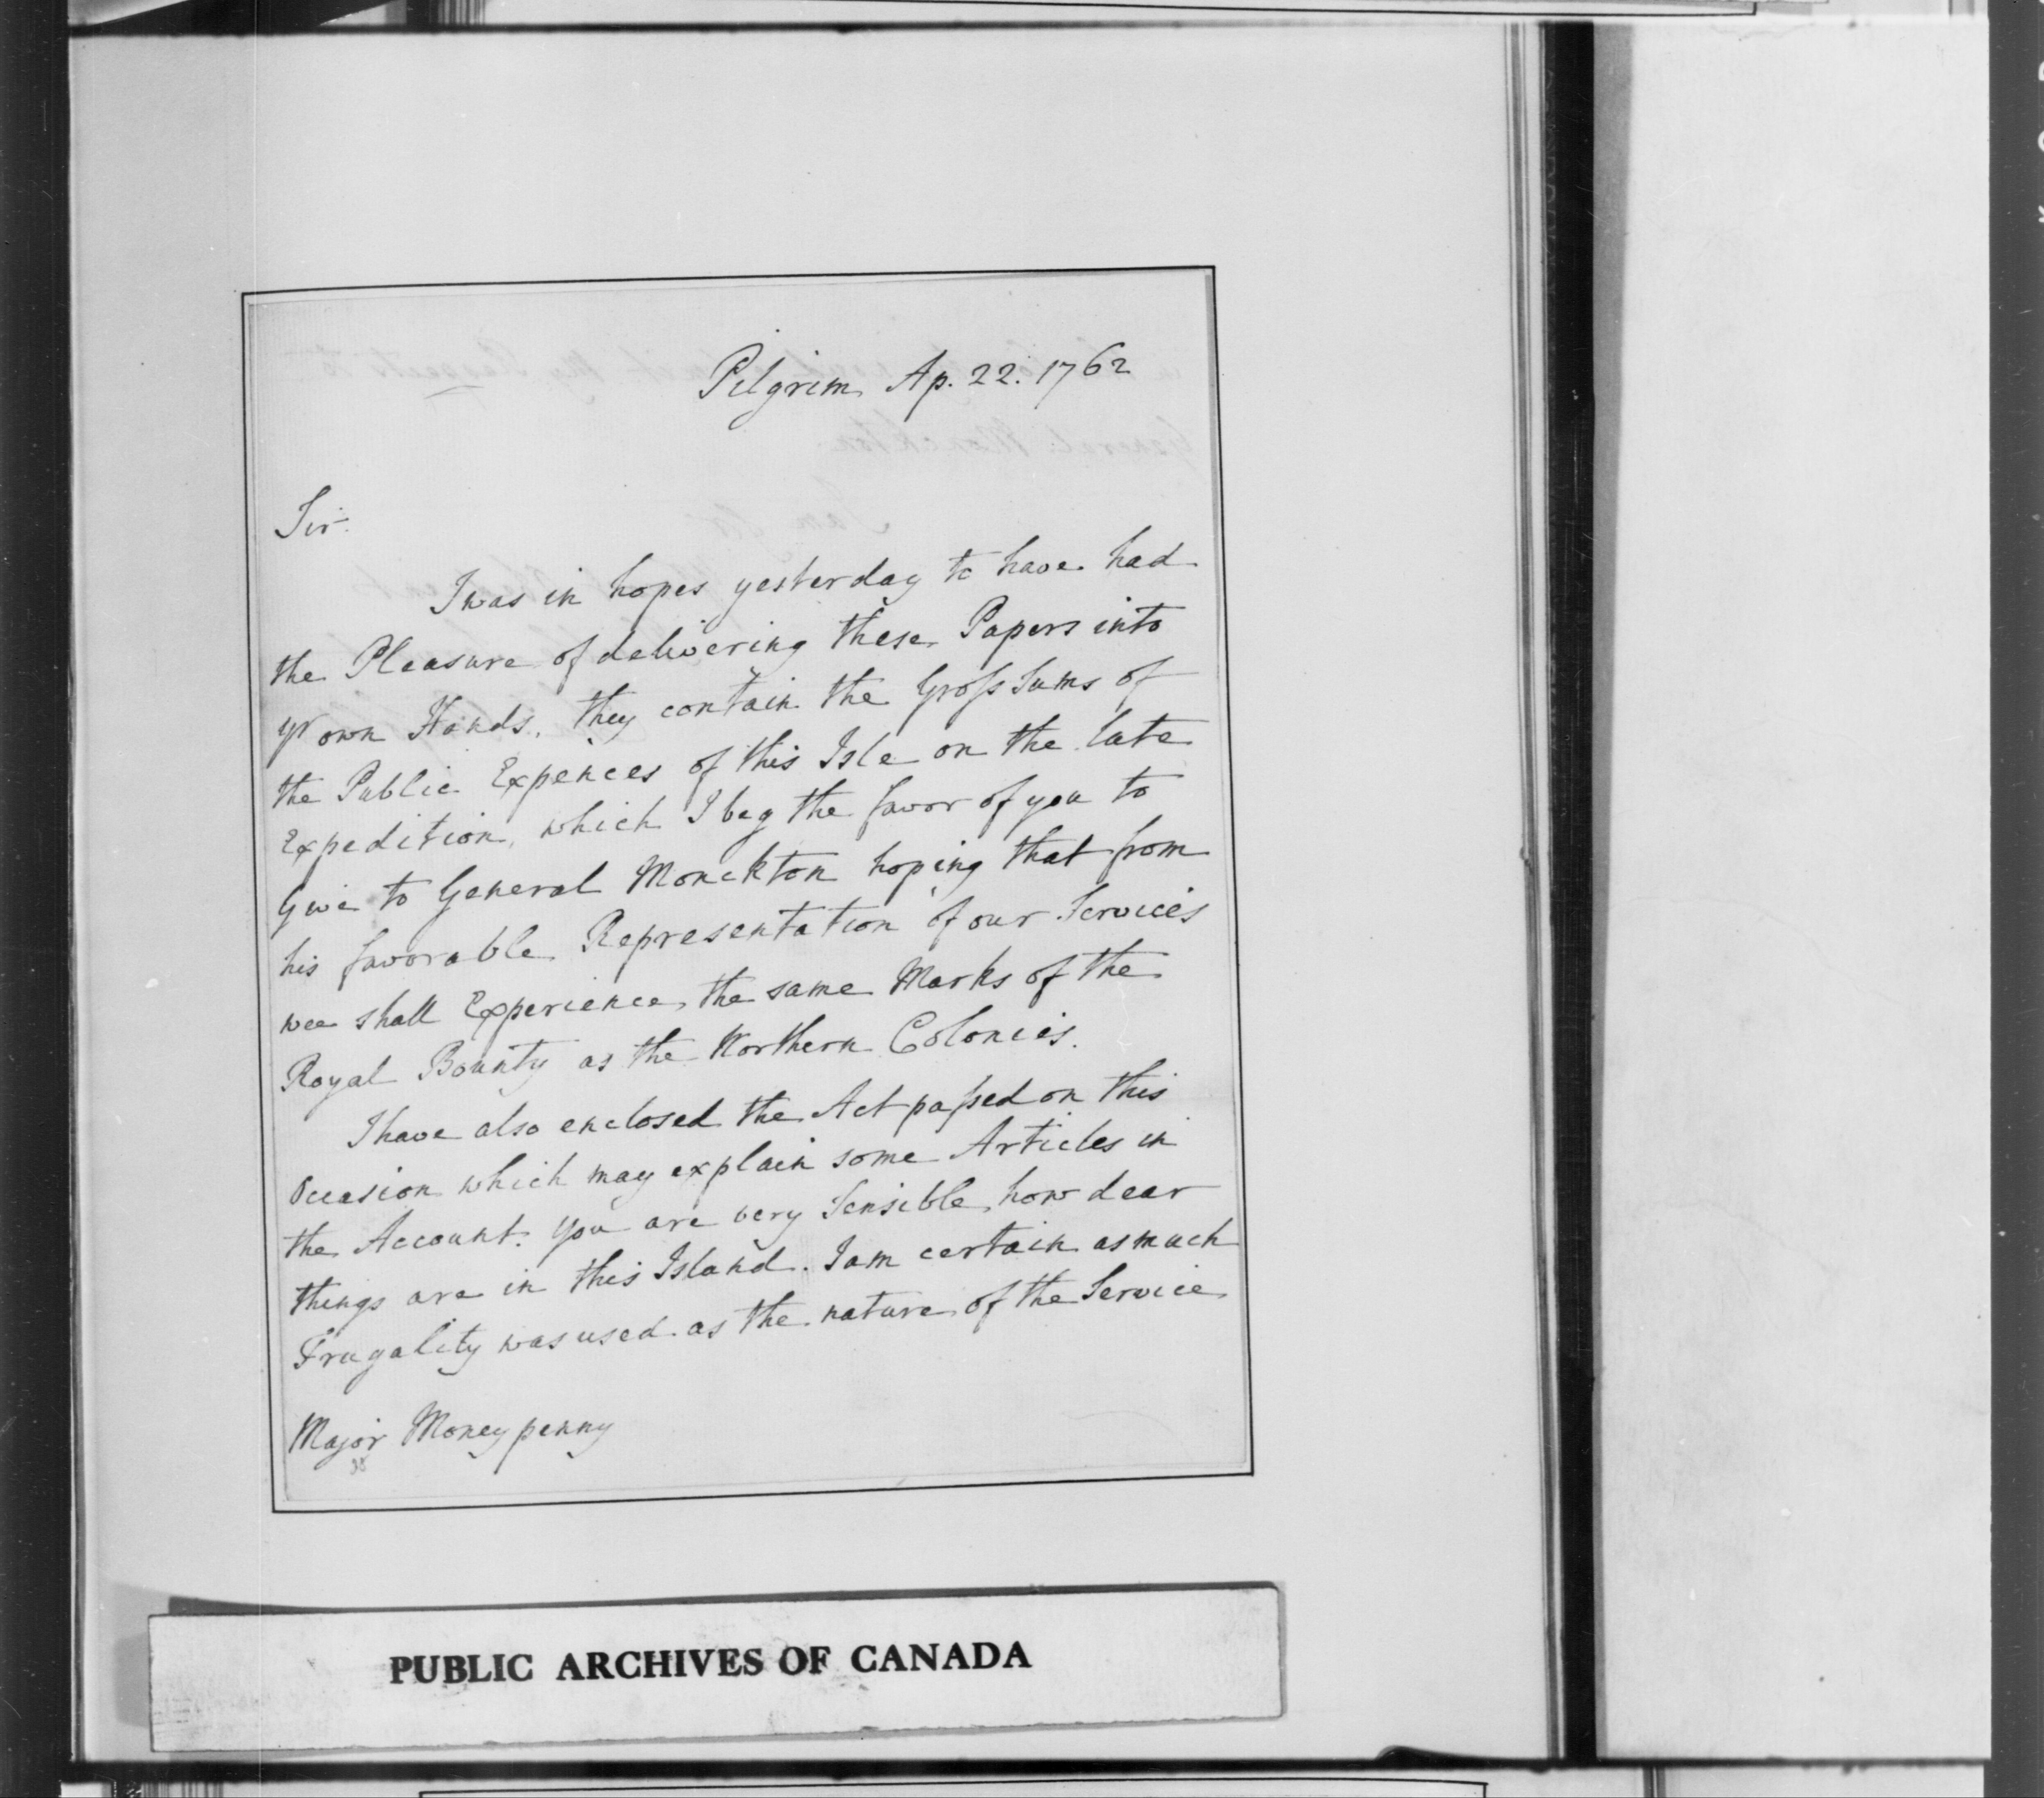 Pilgrim Ap. 22. 1762
Sir
I was in hopes yesterday to have had
the Pleasure of delivering these Papers into
yr own Hands, they contain the Gross Sums of
the Public Expences of this Isle on the late
Expedition, which I beg the favor of you to
Give to General Monckton hoping that from
his favorable Representation of our Services
wee shall Experience the same Marks of the
Royal Bounty as the Northern Colonies.
I have also enclosed the Act passed on this
Occasion which may explain some Articles in
the Account. You are very Sensible how dear
things are in this Island. I am certain as much
Frugality was used as the nature of the Service
Major Moneypenny
PUBLIC ARCHIVES OF CANADA